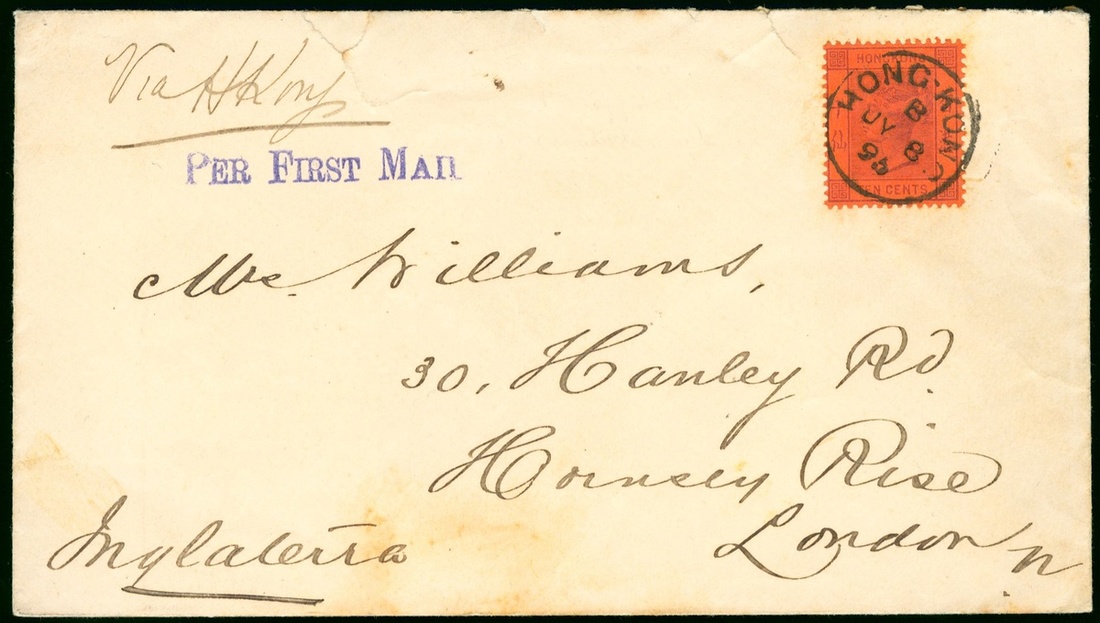 Via H Kong
PER FIRST MAIL
HONG KONG
TEN CENTS
HONG-KONG
B
JY 8
95
Mr. Williams,
30, Hanley Rd
Hornsey Rise
London N
Inglaterra